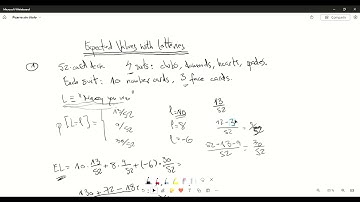 Microsoft Whiteboard
Expected Values with Lotteries
① 52-card deck 4 suits: clubs, diamonds, hearts, spades.
Each suit: 10 number cards, 3 face cards.
L = "Money you win"
P[L=l] = { 13/52 l=10 13/52
9/52 l=8 12-3/52 = 9/52
30/52 l=-6 52-13-9/52 = 30/52
EL = 10 · 13/52 + 8 · 9/52 + (-6) · 30/52 =
130 + 72 - 18